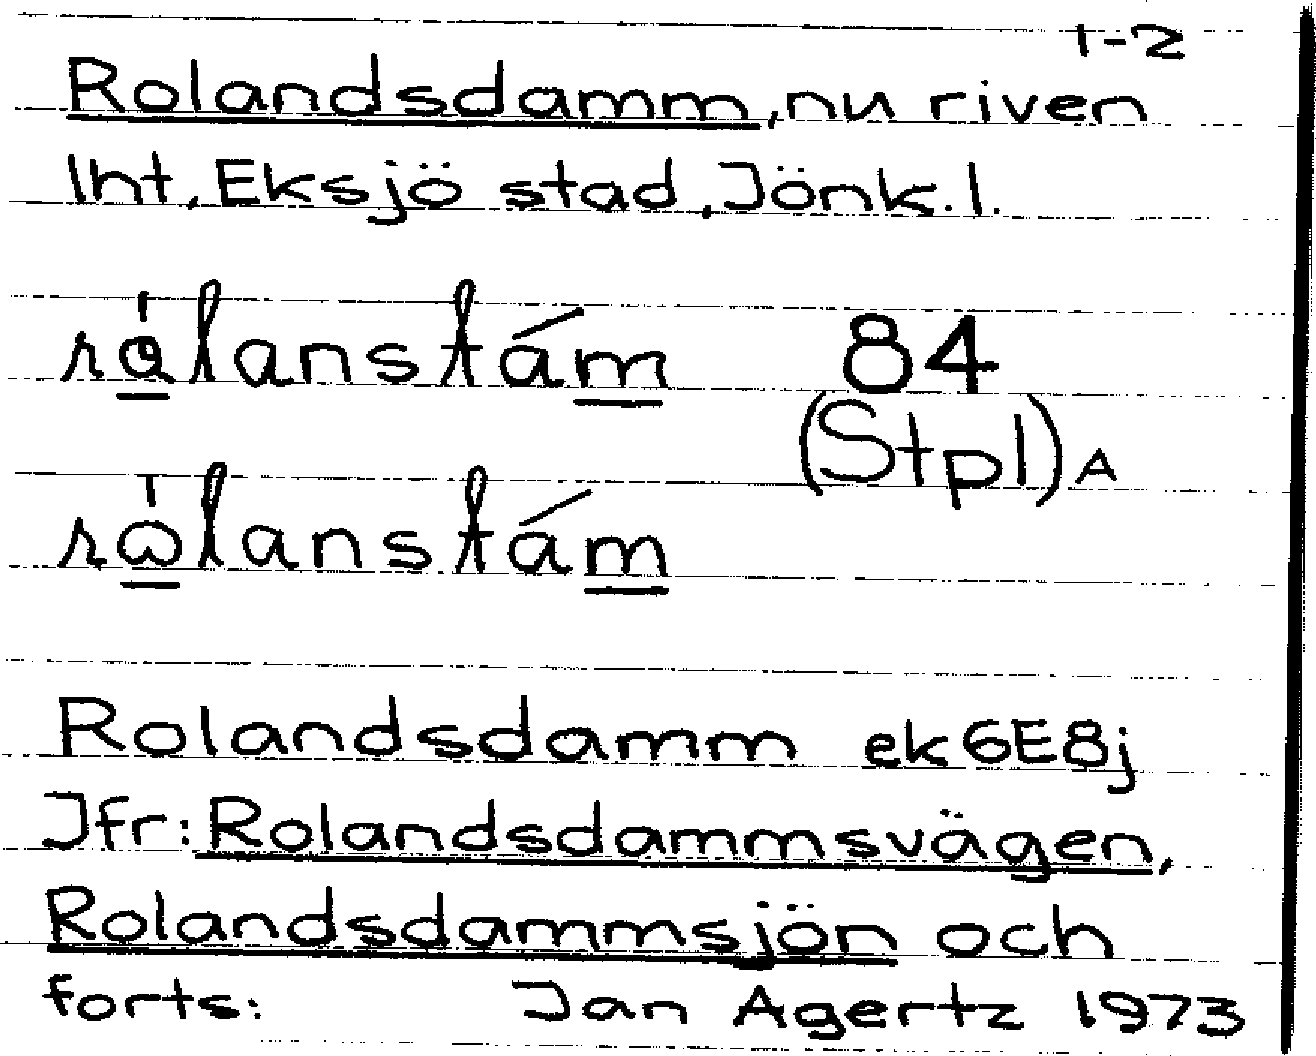 1-2
Rolandsdamm, nu riven
lht, Eksjö stad, Jönk. l.
84
(Stpl) A
Rolandsdamm ek 6E8j
Jfr: Rolandsdammsvägen,
Rolandsdammsjön och
forts: Jan Agertz 1973